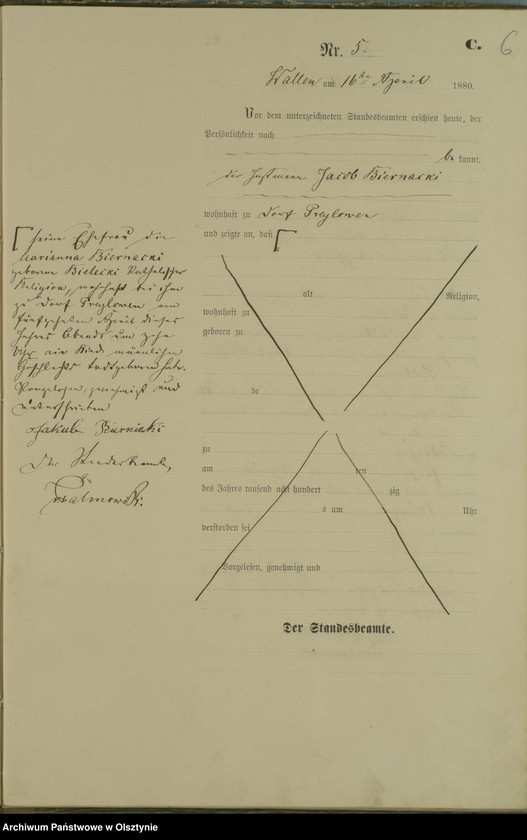 C.
6
Nr. 5.
Wallen am 16ten April 1880.
Vor dem unterzeichneten Standesbeamten erschien heute, der
Persönlichkeit nach
bekannt,
der Jacob Biernacki
wohnhaft zu Dorf Przylowen
und zeigte an, daß [
[seine Ehefrau die
Marianna Biernacki
geborene Bielecki katholischer
Religion, wohnhaft bei ihm
zu Dorf Przylowen am
fünfzehnten April dieses
Jahres Abends um zehn
Uhr ein Kind männlichen
Geschlechts todtgeboren habe.
Vorgelesen, genehmigt und
unterschrieben
Jakub Biernicki
Der Standesbeamte,
alt Religion,
wohnhaft zu
geboren zu
de
zu
am ten
des Jahres tausend acht hundert zig
s um Uhr
verstorben sei.
Vorgelesen, genehmigt und
Der Standesbeamte.
Archiwum Państwowe w Olsztynie